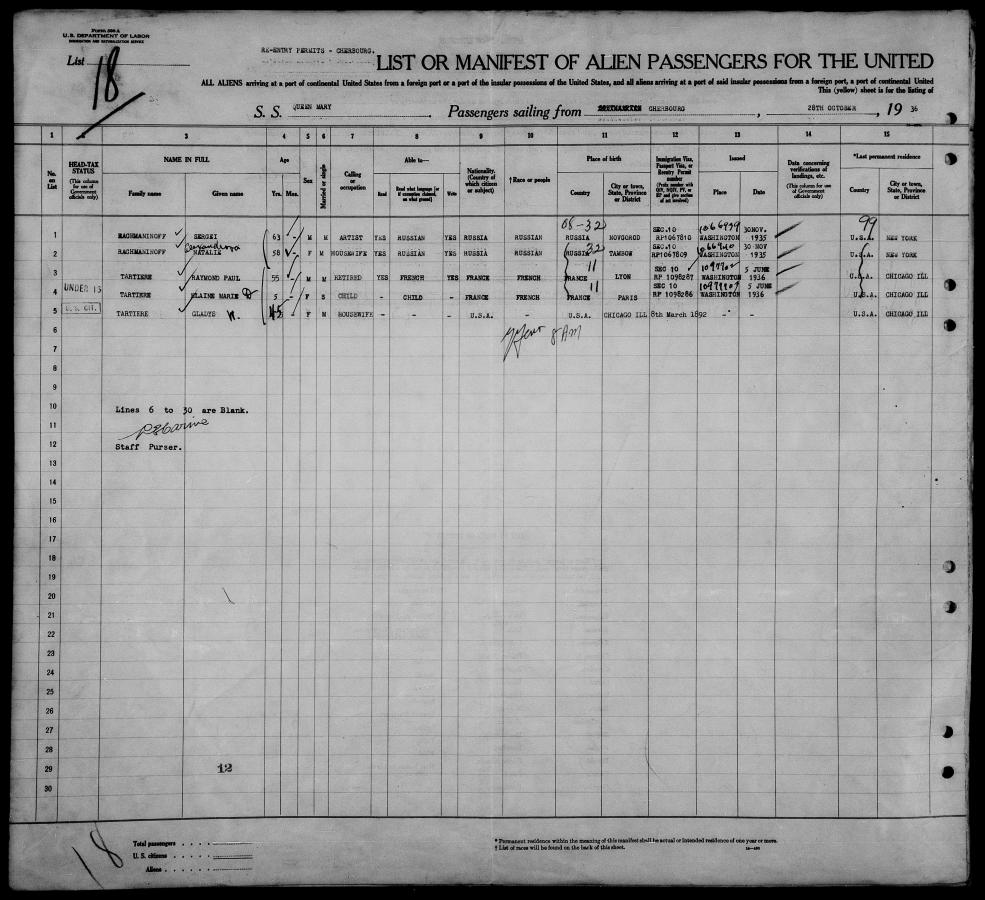 Form 500 A
U.S. DEPARTMENT OF LABOR
IMMIGRATION AND NATURALIZATION SERVICE
List 18
RE-ENTRY PERMITS - CHERBOURG.
LIST OR MANIFEST OF ALIEN PASSENGERS FOR THE UNITED
ALL ALIENS arriving at a port of continental United States from a foreign port or a port of the insular possessions of the United States, and all aliens arriving at a port of said insular possessions from a foreign port, a port of continental United
This (yellow) sheet is for the listing of
S. S. QUEEN MARY Passengers sailing from SOUTHAMPTON CHERBOURG, 28TH OCTOBER, 19 36
1 2 3 4 5 6 7 8 9 10 11 12 13 14 15
No. on List
HEAD-TAX STATUS (This column for use of Government officials only)
NAME IN FULL Family name Given name
Age Yrs. Mos.
Sex
Married or single
Calling or occupation
Able to— Read Read what language (or if exemption claimed, on what ground) Write
Nationality. (Country of which citizen or subject)
† Race or people
Place of birth Country City or town, State, Province or District
Immigration Visa, Passport Visa, or Reentry Permit number
Issued Place Date
Data concerning verifications of landings, etc. (This column for use of Government officials only)
*Last permanent residence Country City or town, State, Province or District
08-32 99
1 RACHMANINOFF SERGEI 63 - M M ARTIST YES RUSSIAN YES RUSSIA RUSSIAN RUSSIA NOVGOROD SEC.10 RP1067810 1066939 WASHINGTON 30NOV. 1935 U.S.A. NEW YORK
Alexandrovna 32
2 RACHMANINOFF NATALIE 58 F M HOUSEWIFE YES RUSSIAN YES RUSSIA RUSSIAN RUSSIA TAMBOW SEC.10 RP1067809 1066940 WASHINGTON 30 NOV 1935 U.S.A. NEW YORK
11
3 TARTIERE RAYMOND PAUL 55 - M M RETIRED YES FRENCH YES FRANCE FRENCH FRANCE LYON SEC 10 RP 1098287 WASHINGTON 5 JUNE 1936 U.S.A. CHICAGO ILL
11
4 UNDER 16 TARTIERE ELAINE MARIE D 5 - F S CHILD - CHILD - FRANCE FRENCH FRANCE PARIS SEC 10 RP 1098286 WASHINGTON 5 JUNE 1936 U.S.A. CHICAGO ILL
5 U.S. CIT. TARTIERE GLADYS N. 45 F M HOUSEWIFE - - - U.S.A. - U.S.A. CHICAGO ILL 8th March 1892 - - U.S.A. CHICAGO ILL
6
8 AM
7
8
9
10 Lines 6 to 30 are Blank.
11
12 Staff Purser.
13
14
15
16
17
18
19
20
21
22
23
24
25
26
27
28
29 12
30
18
Total passengers
U. S. citizens
Aliens
* Permanent residence within the meaning of this manifest shall be actual or intended residence of one year or more.
† List of races will be found on the back of this sheet.